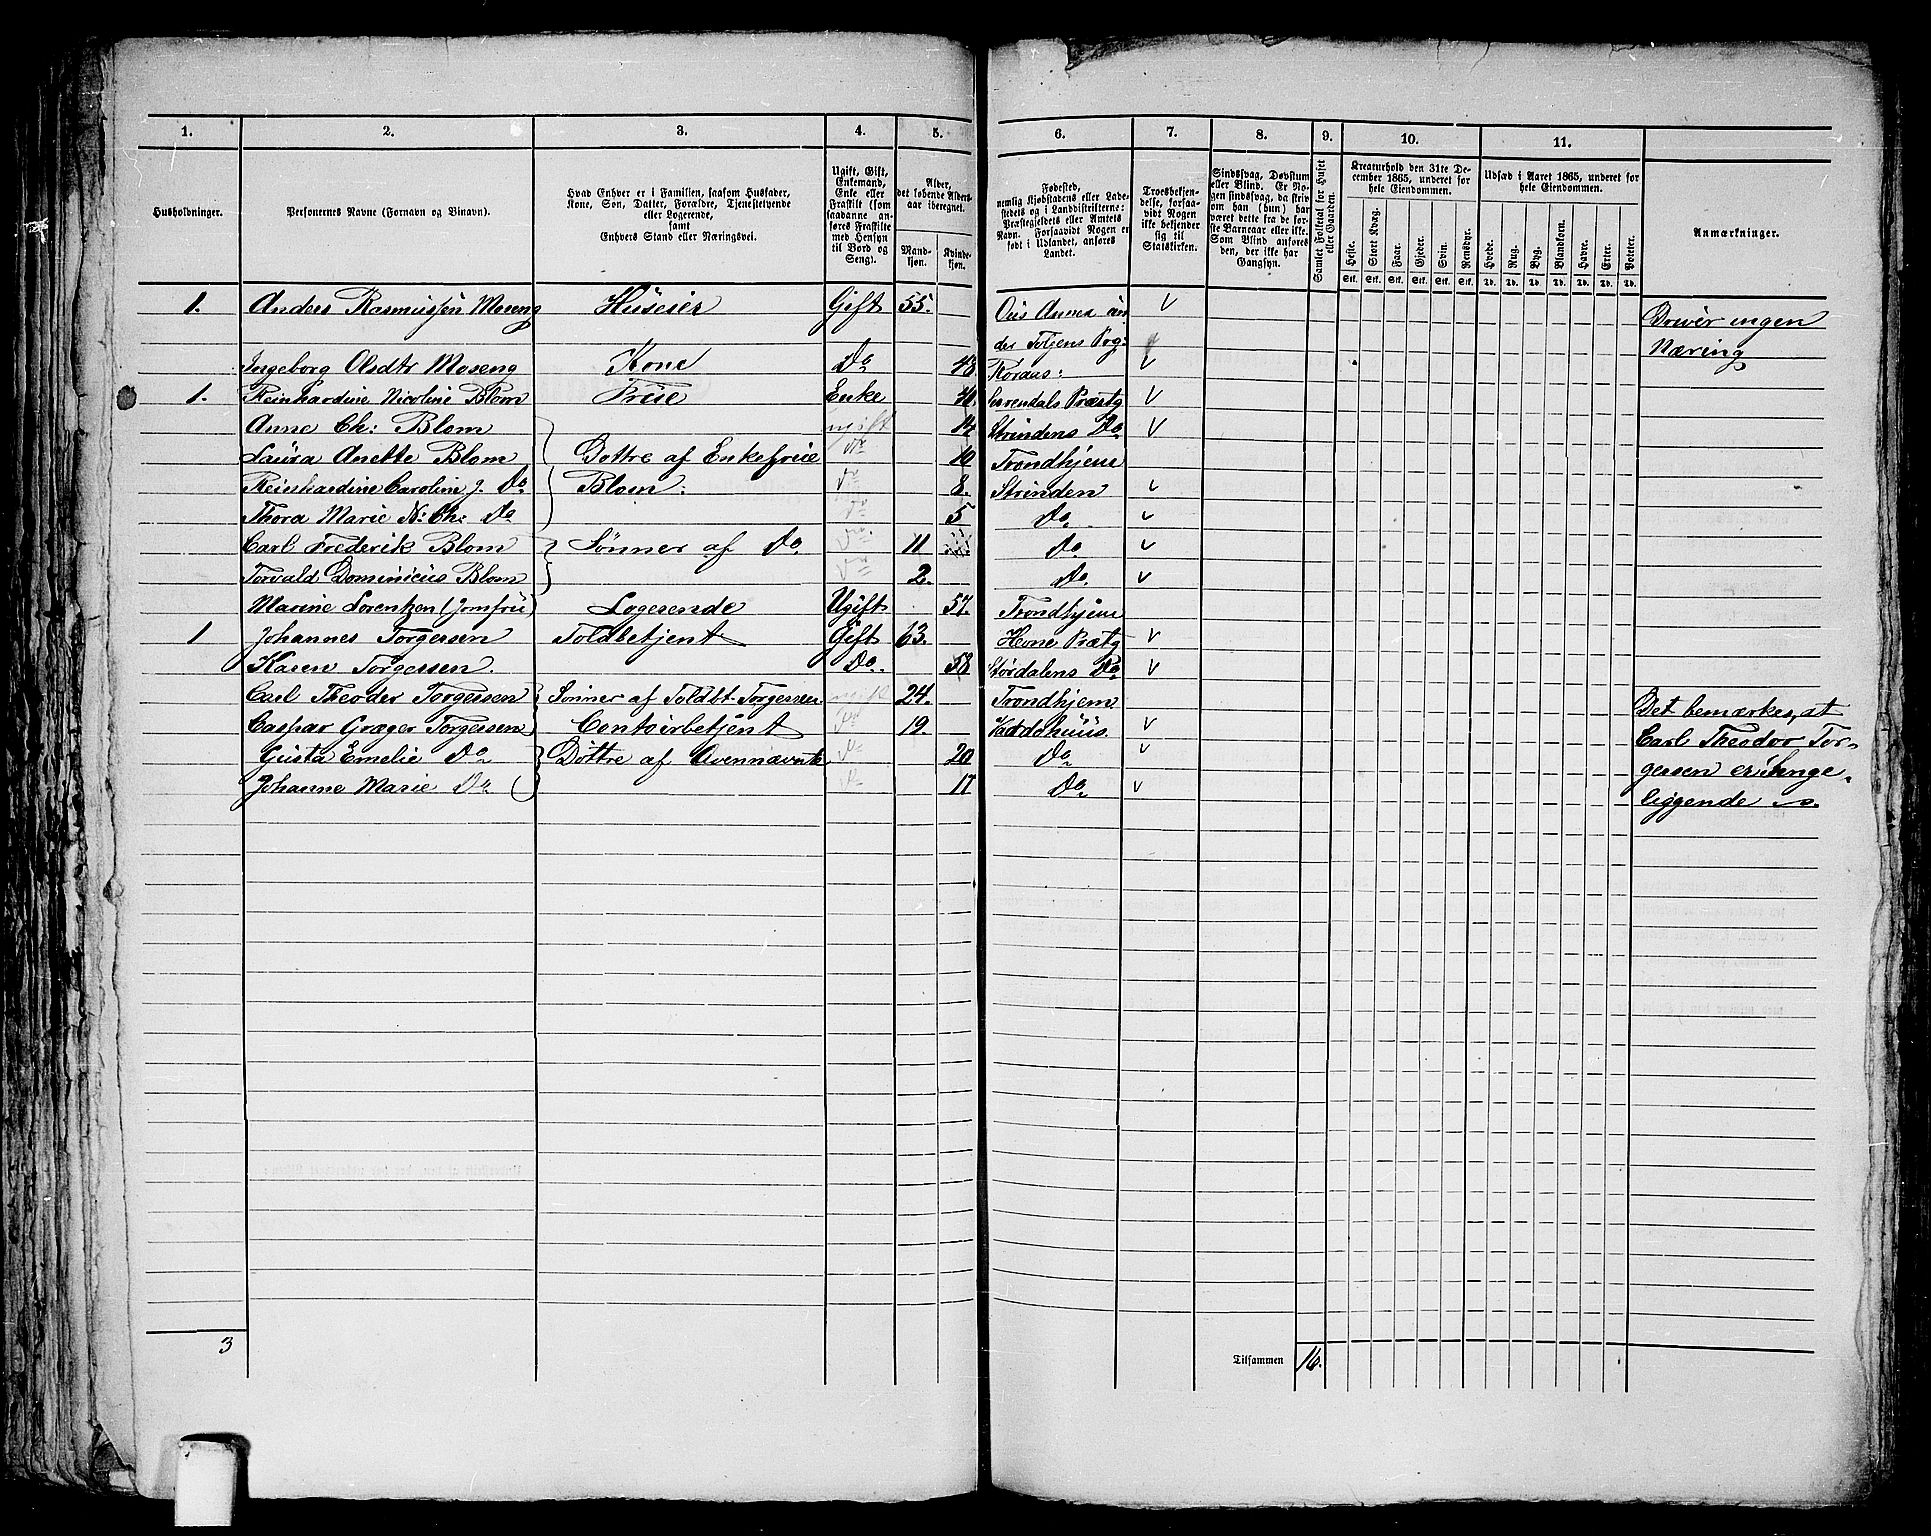 1. 2. 3. 4. 5. 6. 7. 8. 9. 10. 11.
Husholdninger.
Personernes Navne (Fornavn og Vinavn).
Hvad Enhver er i Familien, saasom Husfader,
Kone, Søn, Datter, Forældre, Tjenestetyende
eller Logerende,
samt
Enhvers Stand eller Næringsvei.
Ugift, Gift,
Enkemand,
Enke eller
Fraskilt (som
saadanne an-
føres Fraskilte
med Hensyn
til Bord og
Seng).
Alder,
det løbende Alders-
aar iberegnet.
Mand-
kjøn.
Kvinde-
kjøn.
Fødested,
nemlig Kjøbstadens eller Lade-
stedets og i Landdistrikterne:
Præstegjeldets eller Amtets
Navn. Forsaavidt Nogen er
født i Udlandet, anføres
Landet.
Troesbekjen-
delse, forsaa-
vidt Nogen
ikke bekjender
sig til
Statskirken.
Sindssvag, Døvstum
eller Blind. Er No-
gen sindssvag, da skriv
om han (hun) har
været dette fra de før-
ste Barneaar eller ikke.
Som Blind anføres
den, der ikke har
Gangsyn.
Samlet Folketal for Huset
eller Gaarden.
Kreaturhold den 31te De-
cember 1865, underet for
hele Eiendommen.
Heste. Stort Kvæg. Faar. Gjeder. Svin. Rensdyr.
Stk. Stk. Stk. Stk. Stk. Stk.
Udsæd i Aaret 1865, underet for
hele Eiendommen.
Hvede. Rug. Byg. Blandkorn. Havre. Erter. Poteter.
Td. Td. Td. Td. Td. Td. Td.
Anmærkninger.
1. Anders Rasmussen Moseng Huseier Gift 55.
des Tolgens Pog: Driver ingen
Næring
Ingeborg Olsdtr Moseng Kone Do 48. Røraas:
1. Reinhardine Nicoline Blom Frue Enke Præstg
Anne Ch: Blom ugift 14 Strindens Do
Laura Anette Blom Døttre af Enkefrue Do 10 Trondhjem
Reinhardine Caroline J. Do Blom. Do 8. Strinden
Thora Marie N: Ch: Do Do 5 Do
Carl Frederik Blom Sønner af Do Do 11 Do
Torvald Dominicus Blom Do 2. Do
Marine Lorentzen (Jomfru) Logerende Ugift 57. Trondhjem
1 Johannes Torgersen Toldbetjent Gift 63. Hevne Præstg
Karen Torgersen. Do 58 Størdalens Do
Carl Theodor Torgersen Sønner af Toldbt. Torgersen ugift 24. Trondhjem
Caspar Græger Torgersen Contoirbetjent Do 19.
Gusta Emelie Do Døttre af Ovennævnte Do 20 Do
Johanne Marie Do Do 17 Do
Det bemærkes, at
Carl Theodor Tor-
gersen er Senge-
liggende
3
Tilsammen 16.